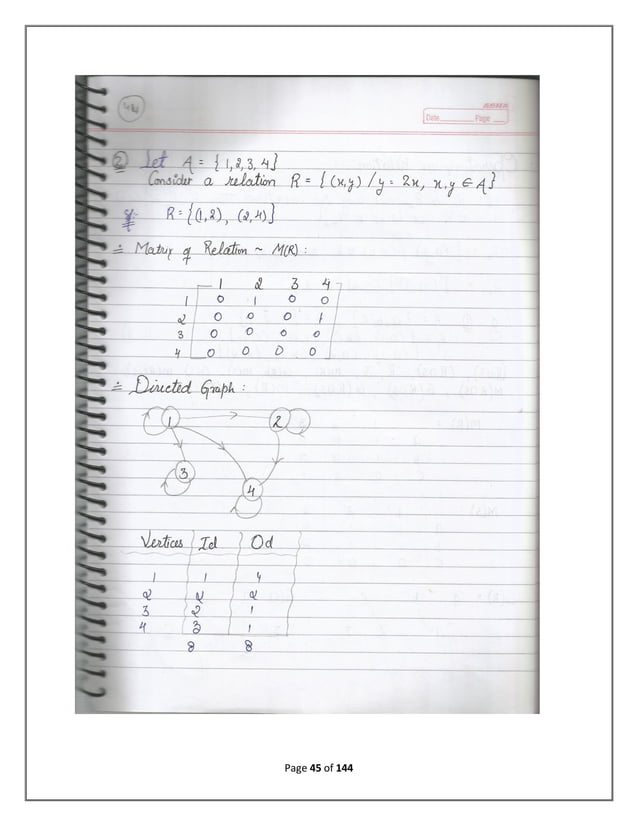 44
Date Page
② Let A = { 1, 2, 3, 4 }
Consider a relation R = { (x,y) / y = 2x, x, y ∈ A }
R = { (1,2), (2,4) }
∴ Matrix of Relation ~ M(R) :
1 2 3 4
1 0 1 0 0
2 0 0 0 1
3 0 0 0 0
4 0 0 0 0
∴ Directed Graph :
1 2
3
4
Vertices Id Od
1 1 4
2 2 2
3 2 1
4 3 1
8 8
Page 45 of 144